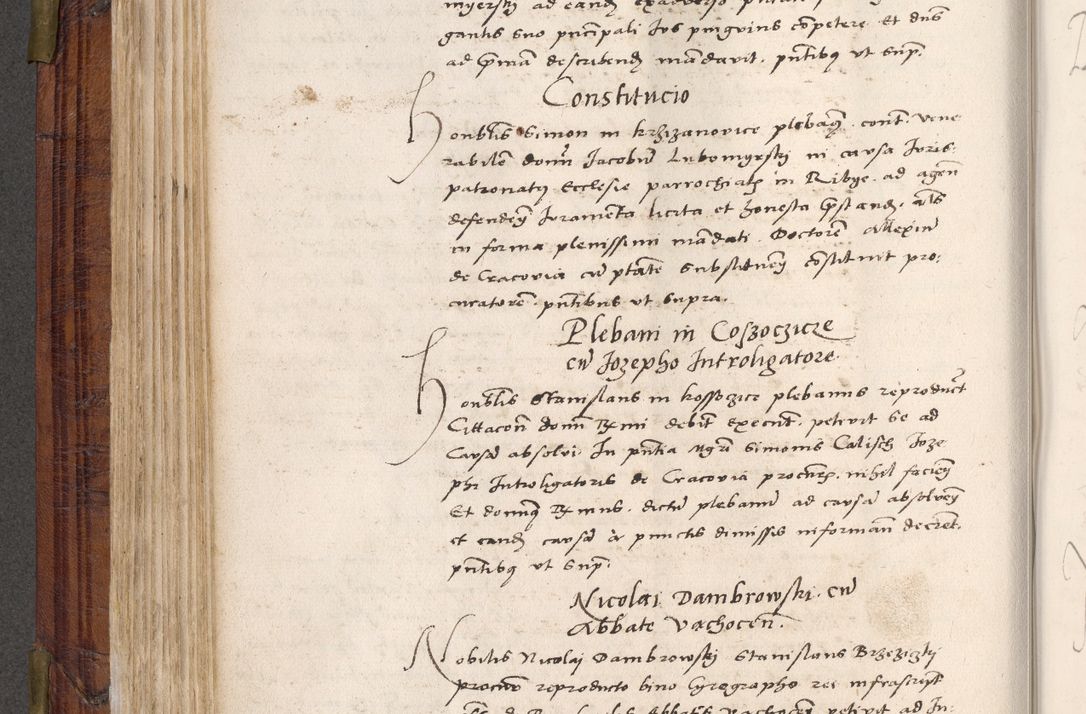 gantis suo principali Ius pinguius competere et dns
ad primam describendam mandavit. pntibq ut supr.
Constitucio
Honblis Simon in krzizanovice plebang. cont. vene
rabilem donm Iacobum Lubomyrskj in causa Iuris
patronatq Ecclesie parrochialis in Ribye. ad agen
defenden Iuramenta licita et honesta prestand. als
in forma plenissimi mandati. Doctorem Allexium
de Cracovia cum ptate substituen constituit pro:
curatorem. pntibus ut supra.
Plebani in Coszoczicze
cum Iozepho Introligatore.
Honblis Stanislaus in kossoczice plebanus reproduct
Cittacon donm Rxmi debit execut. petivit se ad
Causam absolvi. In pntia mgri Simonis Calisch Ioze
phi Introligatoris de Cracovia procuris. nihil facien
Et donnq Rxmus. dictum plebanum ad causam absolven
et eandem causam à punctis dimissis informan decret.
pntibq ut supr.
Nicolai Dambrowski. cum
Abbate Vachocen.
Nobilis Nicolaj Dambrowskj Stanislaus Brzezizkj
procur reproducto bino Chyrographo rei infrascript